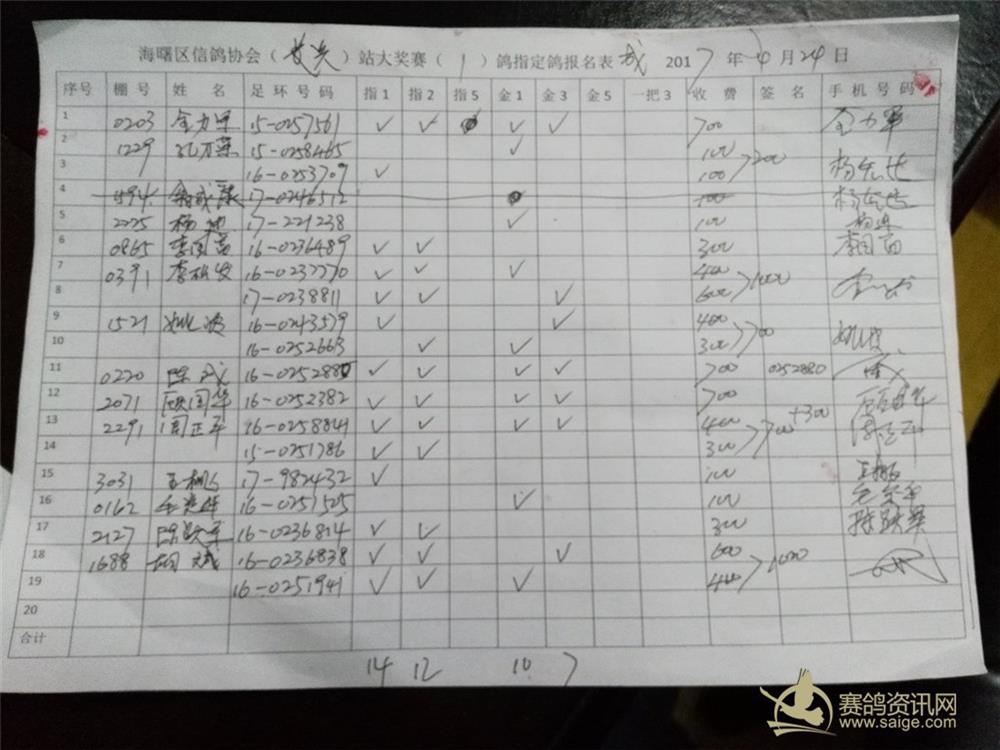 海曙区信鸽协会（ ）站大奖赛（ 1 ）鸽指定鸽报名表 2017年4月24日
序号 棚号 姓名 足环号码 指1 指2 指5 金1 金3 金5 一把3 收费 签名 手机号码
1 0203 全力军 15-0257561 ✓ ✓ ✓ ✓ 700 全力军
2 1229 15-0258465 ✓ 100
3 16-0253709 ✓ 100 200
4 17-0246512 100
5 2225 17-221238 ✓ 100
6 0865 李国富 16-0236489 ✓ ✓ 300 李国富
7 0391 16-0237770 ✓ ✓ ✓ 400 1000
8 17-0238811 ✓ ✓ ✓ 600
9 1521 姚波 16-0243579 ✓ ✓ 400 700 姚波
10 16-0252663 ✓ ✓ 300
11 0220 陈成 16-0252880 ✓ ✓ ✓ ✓ 700 0252880
12 2071 顾国华 16-0252382 ✓ ✓ ✓ ✓ 700 顾国华
13 2291 周正军 16-0258841 ✓ ✓ ✓ ✓ 400 700+300 周正军
14 15-0251786 ✓ ✓ 300
15 3031 17-982432 ✓ 100
16 0162 16-0251525 ✓ 100
17 2127 陈跃军 16-0236814 ✓ ✓ 300 陈跃军
18 1688 胡斌 16-0236838 ✓ ✓ ✓ 600 1000
19 16-0251941 ✓ ✓ ✓ 400
20
合计
14 12 10 7
赛鸽资讯网
www.saige.com